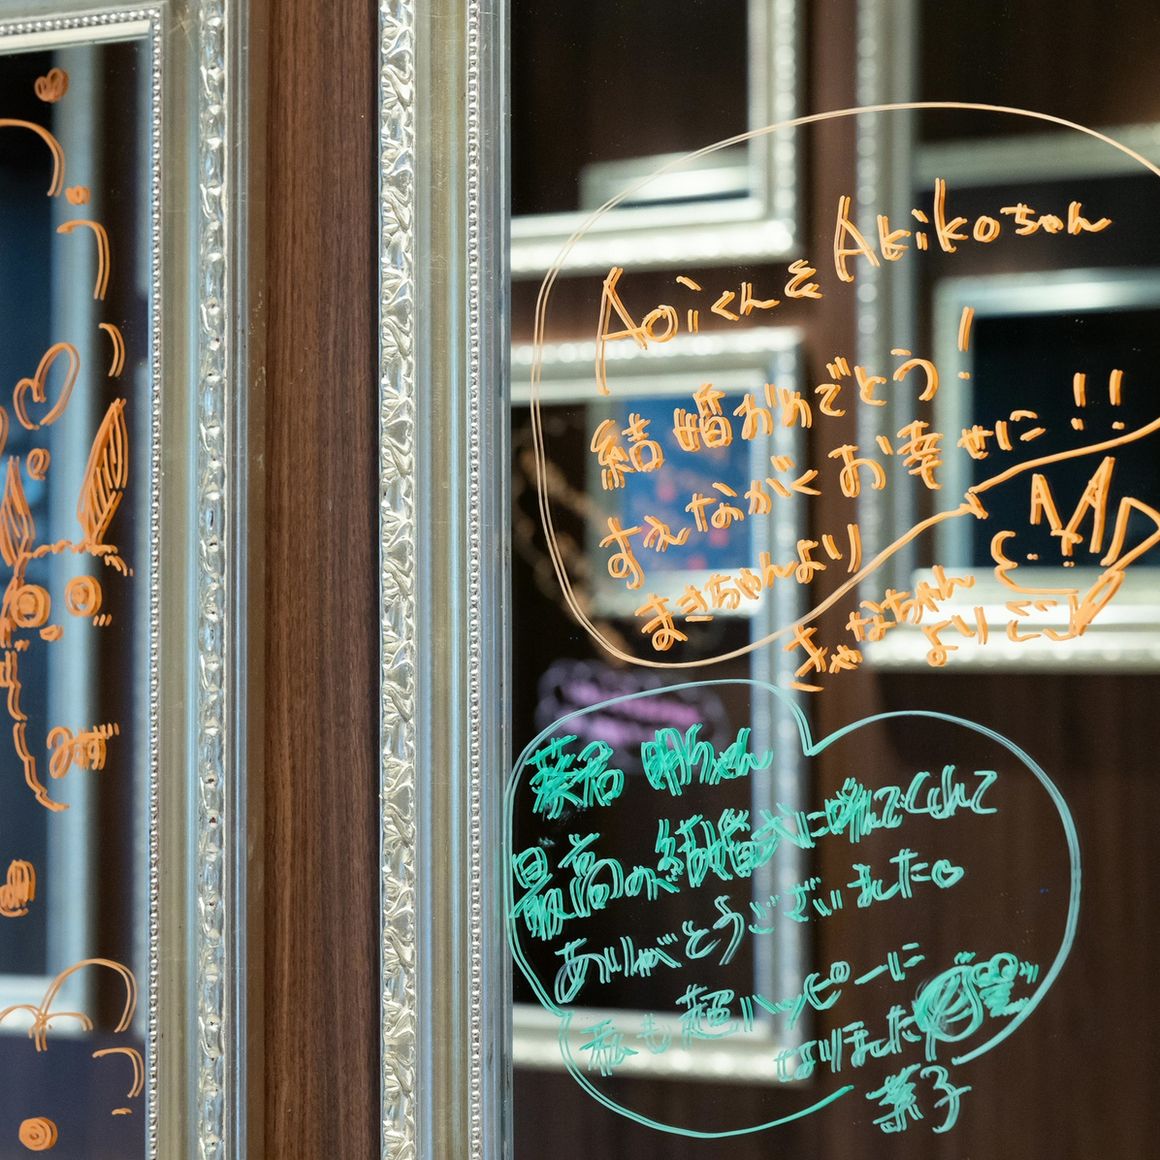 Aoiくんと Akikoちゃん
結婚おめでとう!
すえながくお幸せに!!
まきちゃんより
きゃなちゃん
より
みずき
葵君 明ちゃん
最高の結婚式に呼んでくれて
ありがとうございました♡
私も超ハッピーに
なりました
葉子